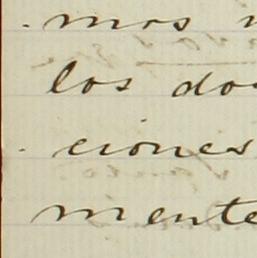 mos
los dos
ciones
mente